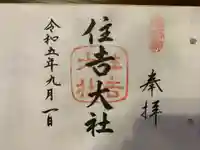 奉拝
住吉大社
令和五年九月一日